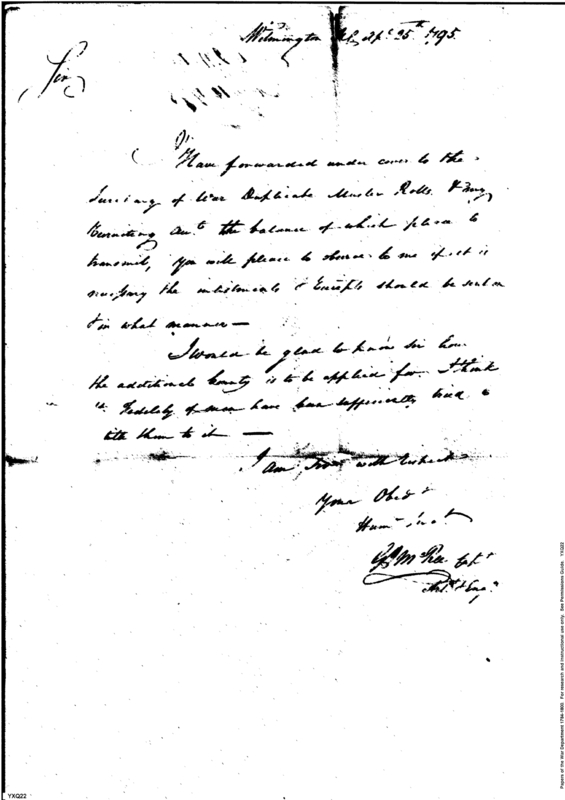 Wilmington N.C. Apl. 25th 1795.
Sir
Have forwarded under cover to the
of War Duplicate Muster Rolls & my
Recruiting Acct. the balance of which please to
transmit, you will please to observe to me if it is
necessary the inlistments & Receipts should be sent on
& in what manner—
I would be glad to know sir how
the additional bounty is to be applied for. I think
Fidelity of men have been sufficiently tried
them to it —
I Am, Sir with Respect
Your Obed.t
Hum.
McRee Capt
Art. & Eng.
Papers of the War Department 1784-1800. For research and instructional use only. See Permissions Guide. YXQ22
YXQ22